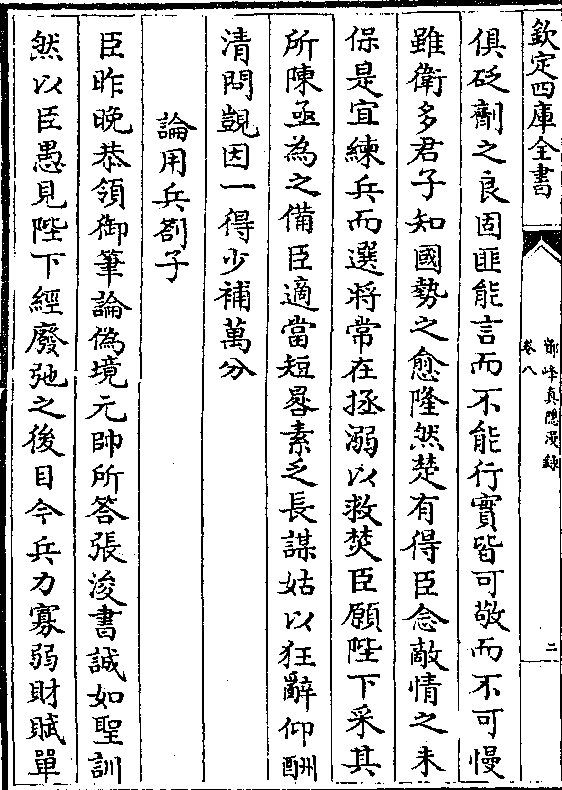 欽定四庫全書
鄮峰真隱漫錄
卷八
二
俱砭劑之良固匪能言而不能行實皆可敬而不可慢
雖衛多君子知國勢之愈隆然楚有得臣念敵情之未
保是宜練兵而選將常在拯溺以救焚臣願陛下采其
所陳亟為之備臣適當短晷素乏長謀姑以狂辭仰酬
清問覬因一得少補萬分
論用兵劄子
臣昨晚恭領御筆論偽境元帥所答張浚書誠如聖訓
然以臣愚見陛下經廢弛之後目今兵力寡弱財賦單